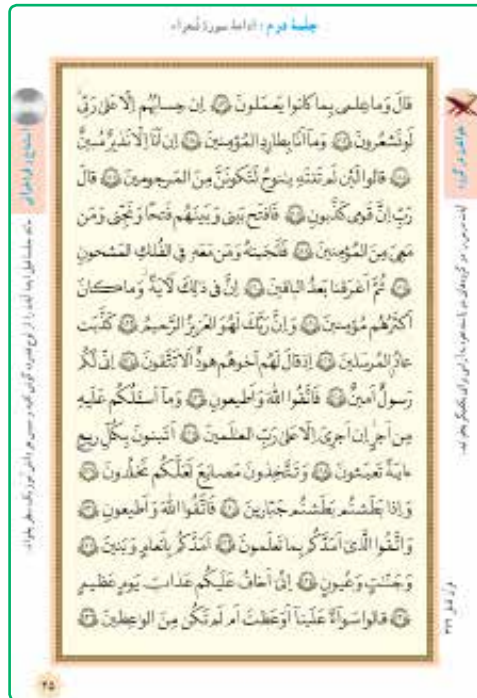 جلسهٔ دوم : (ادامهٔ سورهٔ شعراء)
قالَ وَما عِلمی بِما کانوا یَعمَلونَ ۝ اِن حِسابُهُم اِلّا عَلیٰ رَبّی
لَو تَشعُرونَ ۝ وَما اَنَا بِطارِدِ المُؤمِنینَ ۝ اِن اَنَا اِلّا نَذیرٌ مُبینٌ
۝ قالوا لَئِن لَم تَنتَهِ یـٰنوحُ لَتَکونَنَّ مِنَ المَرجومینَ ۝ قالَ
رَبِّ اِنَّ قَومی کَذَّبونِ ۝ فَافتَح بَینی وَبَینَهُم فَتحًا وَنَجِّنی وَمَن
مَعِیَ مِنَ المُؤمِنینَ ۝ فَاَنجَینـٰهُ وَمَن مَعَهُ فِی الفُلکِ المَشحونِ
۝ ثُمَّ اَغرَقنا بَعدُ الباقینَ ۝ اِنَّ فی ذٰلِکَ لَآیَةً وَما کانَ
اَکثَرُهُم مُؤمِنینَ ۝ وَاِنَّ رَبَّکَ لَهُوَ العَزیزُ الرَّحیمُ ۝ کَذَّبَت
عادٌ المُرسَلینَ ۝ اِذ قالَ لَهُم اَخوهُم هودٌ اَلا تَتَّقونَ ۝ اِنّی لَکُم
رَسولٌ اَمینٌ ۝ فَاتَّقُوا اللّٰهَ وَاَطیعونِ ۝ وَما اَسئَلُکُم عَلَیهِ
مِن اَجرٍ اِن اَجرِیَ اِلّا عَلیٰ رَبِّ العـٰلَمینَ ۝ اَتَبنونَ بِکُلِّ ریعٍ
ءایَةً تَعبَثونَ ۝ وَتَتَّخِذونَ مَصانِعَ لَعَلَّکُم تَخلُدونَ ۝
وَاِذا بَطَشتُم بَطَشتُم جَبّارینَ ۝ فَاتَّقُوا اللّٰهَ وَاَطیعونِ ۝
وَاتَّقُوا الَّذی اَمَدَّکُم بِما تَعلَمونَ ۝ اَمَدَّکُم بِاَنعامٍ وَبَنینَ ۝
وَجَنّـٰتٍ وَعُیونٍ ۝ اِنّی اَخافُ عَلَیکُم عَذابَ یَومٍ عَظیمٍ
۝ قالوا سَواءٌ عَلَینا اَوَعَظتَ اَم لَم تَکُن مِنَ الواعِظینَ ۝
خواندن در گروه
استماع و فراخوانی
۴۵